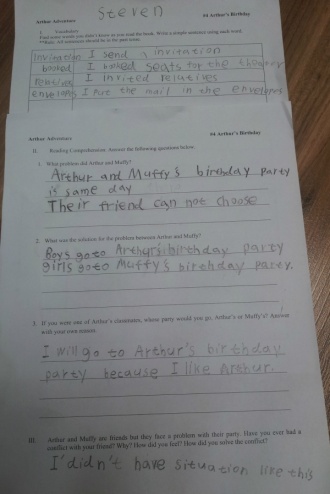 Steven
Arthur Adventure #4 Arthur's Birthday
I. Vocabulary
Find some words you didn't know as you read the book. Write a simple sentence using each word.
**Rule: All sentences should be in the past tense.
invitation I send a invitation
booked I booked seats for the
relative I invited relatives
envelopes I put the mail in the envelopes
Arthur Adventure #4 Arthur's Birthday
II. Reading Comprehension: Answer the following questions below.
1. What problem did Arthur and Muffy?
Arthur and Muffy's birthday party
is same day
Their friend can not choose
2. What was the solution for the problem between Arthur and Muffy?
Boys go to Arthur's birthday party
girls go to Muffy's birthday party.
3. If you were one of Arthur's classmates, whose party would you go, Arthur's or Muffy's? Answer
with your own reason.
I will go to Arthur's birthday
party because I like Arthur.
III. Arthur and Muffy are friends but they face a problem with their party. Have you ever had a
conflict with your friend? Why? How did you feel? How did you solve the conflict?
I didn't have situation like this